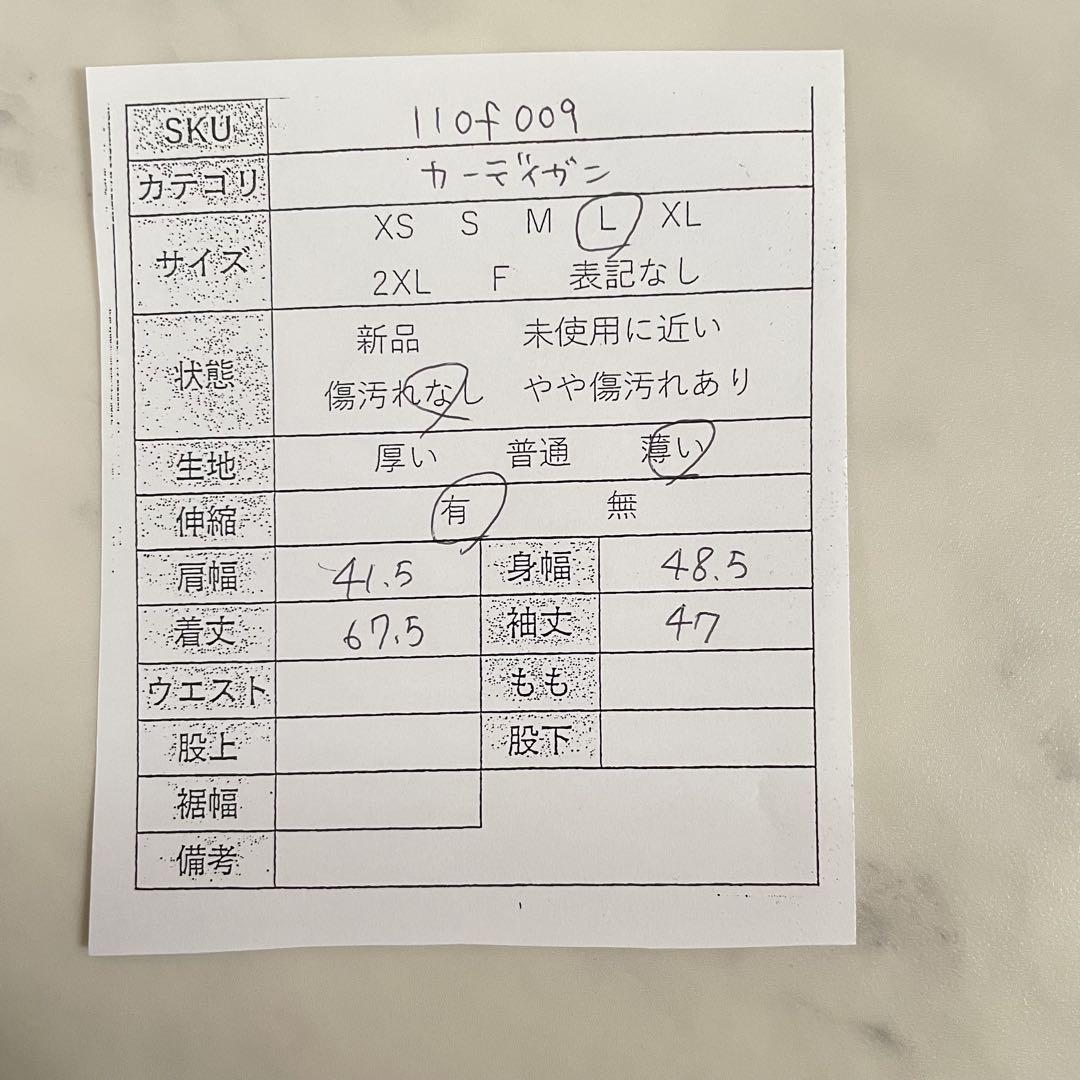 SKU 110f009
カテゴリ カーディガン
サイズ XS S M L XL
2XL F 表記なし
状態 新品 未使用に近い
傷汚れなし やや傷汚れあり
生地 厚い 普通 薄い
伸縮 有 無
肩幅 41.5 身幅 48.5
着丈 67.5 袖丈 47
ウエスト もも
股上 股下
裾幅
備考